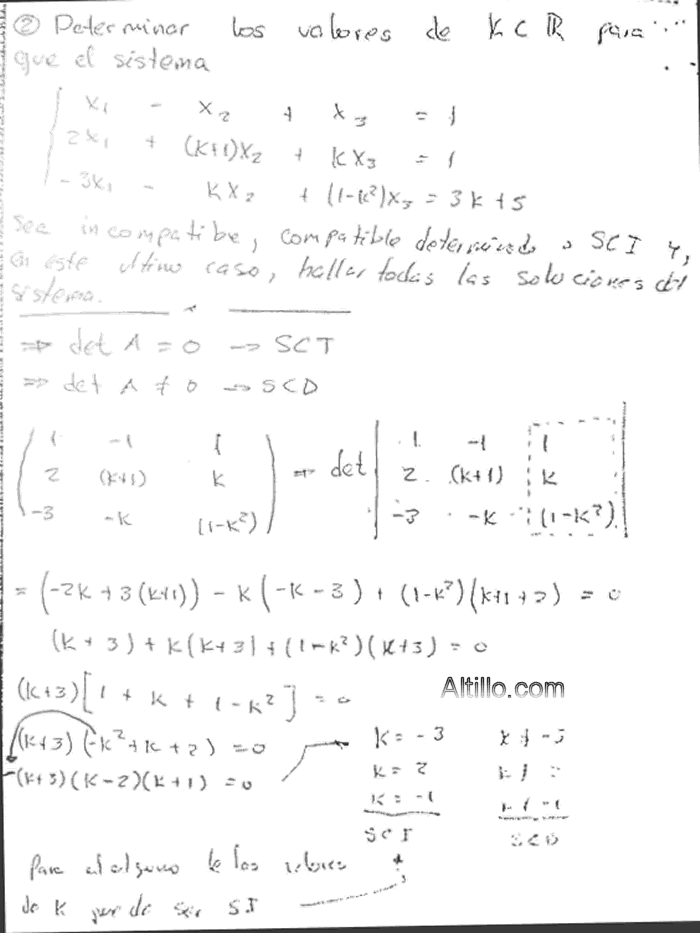 ② Determinar los valores de K ⊂ ℝ para
que el sistema
x₁ - x₂ + x₃ = 1
2x₁ + (k+1)x₂ + kx₃ = 1
-3x₁ - kx₂ + (1-k²)x₃ = 3k+5
sea incompatibe, compatible determinado o SCI y,
en este ultimo caso, hallar todas las soluciones del
sistema.
⇒ det A = 0 → SCI
⇒ det A ≠ 0 → SCD
( 1 -1 1 ) ⇒ det | 1 -1 1 |
( 2 (k+1) k ) | 2 (k+1) k |
( -3 -k (1-k²) ) | -3 -k (1-k²) |
= (-2k + 3(k+1)) - k(-k-3) + (1-k²)(k+1+2) = 0
(k+3) + k(k+3) + (1-k²)(k+3) = 0
(k+3)[1 + k + 1-k²] = 0
Altillo.com
(k+3)(-k²+k+2) = 0
-(k+3)(k-2)(k+1) = 0
k = -3 k ≠ -3
k = 2 k ≠
k = -1 k ≠ -1
SCI SCD
Para alguno de los valores
de K puede ser SI